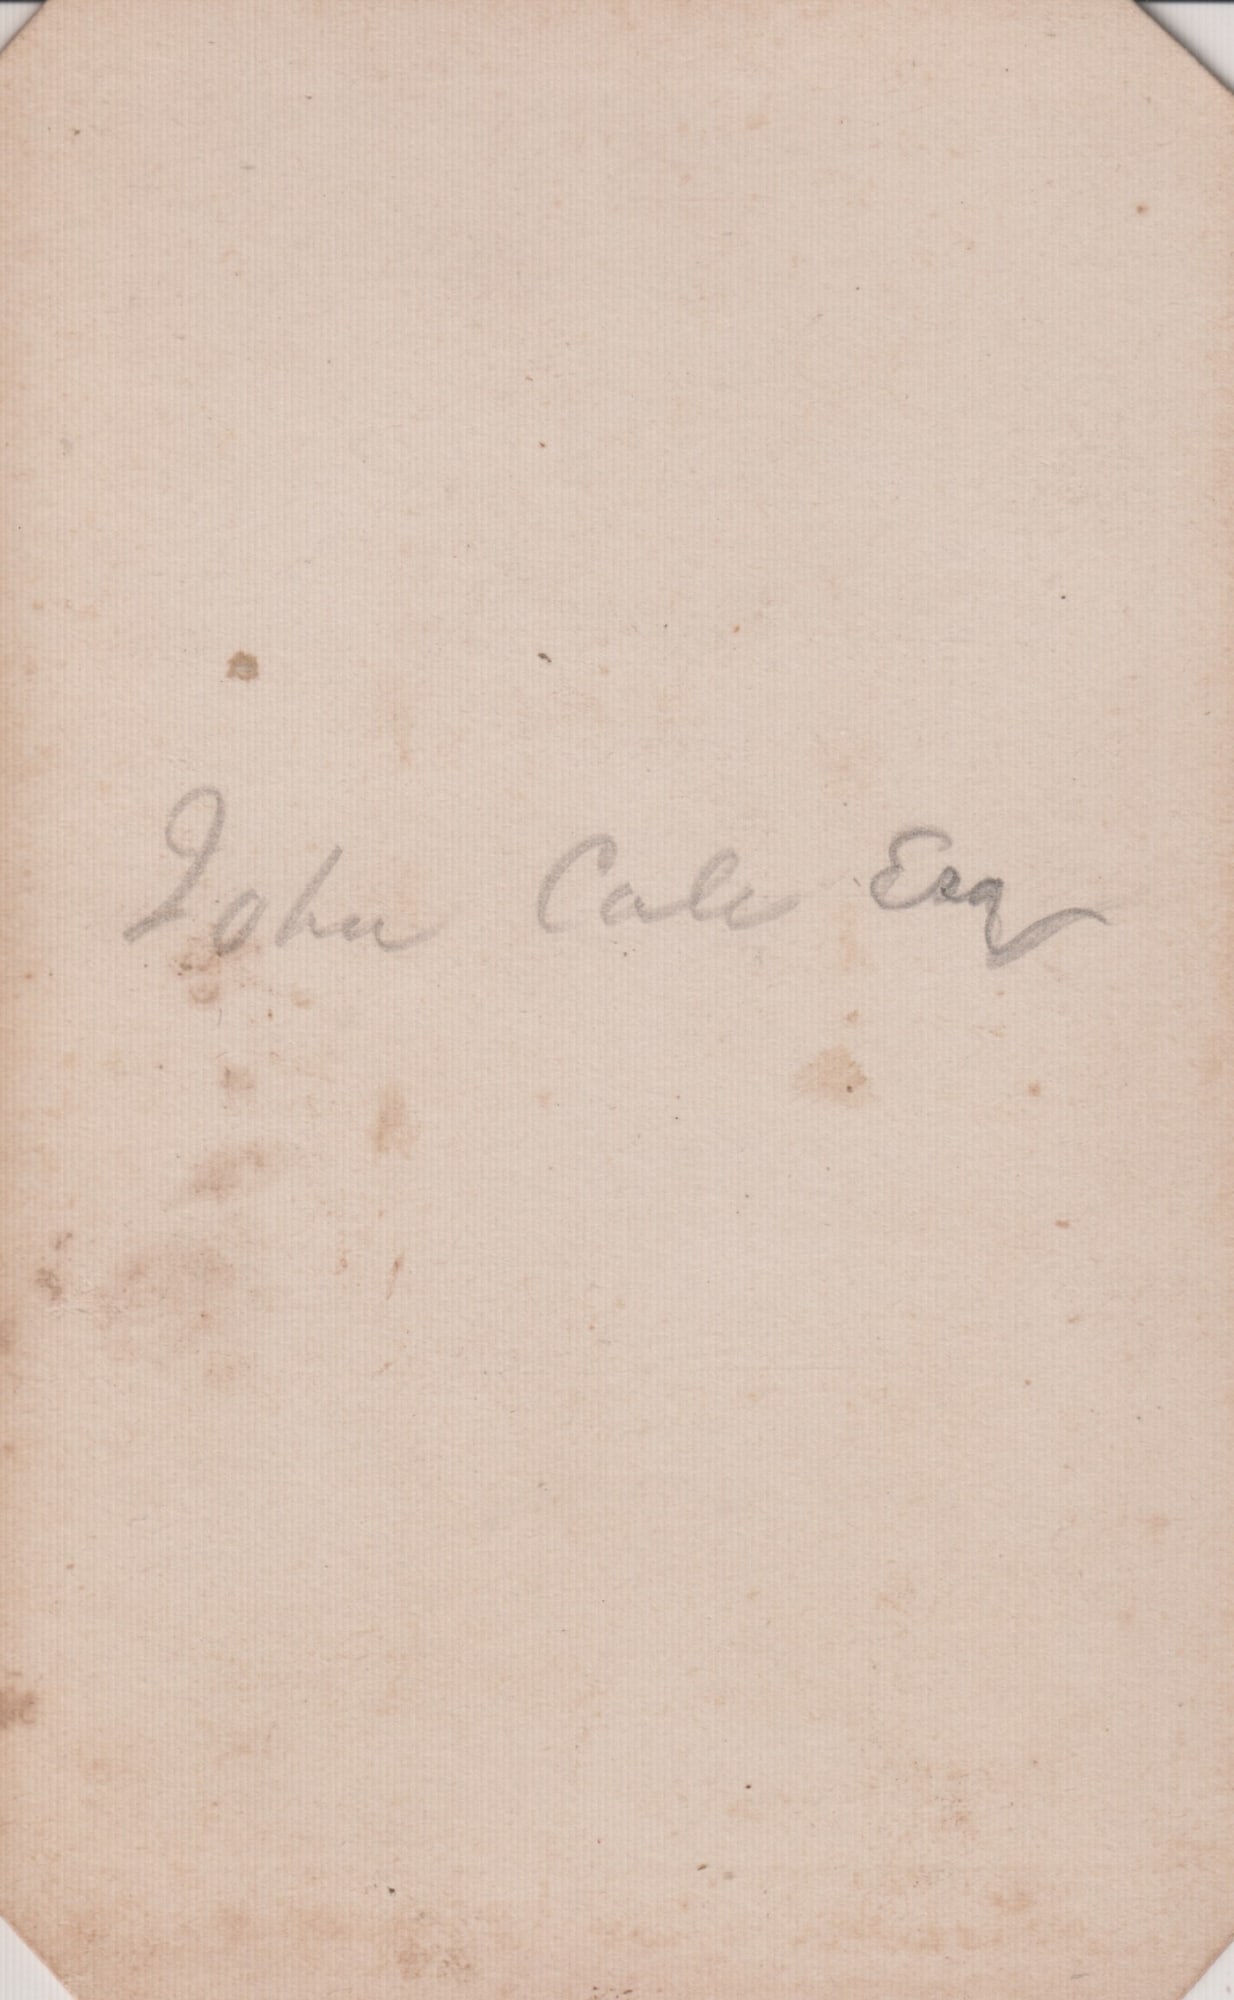 John Cale Esq